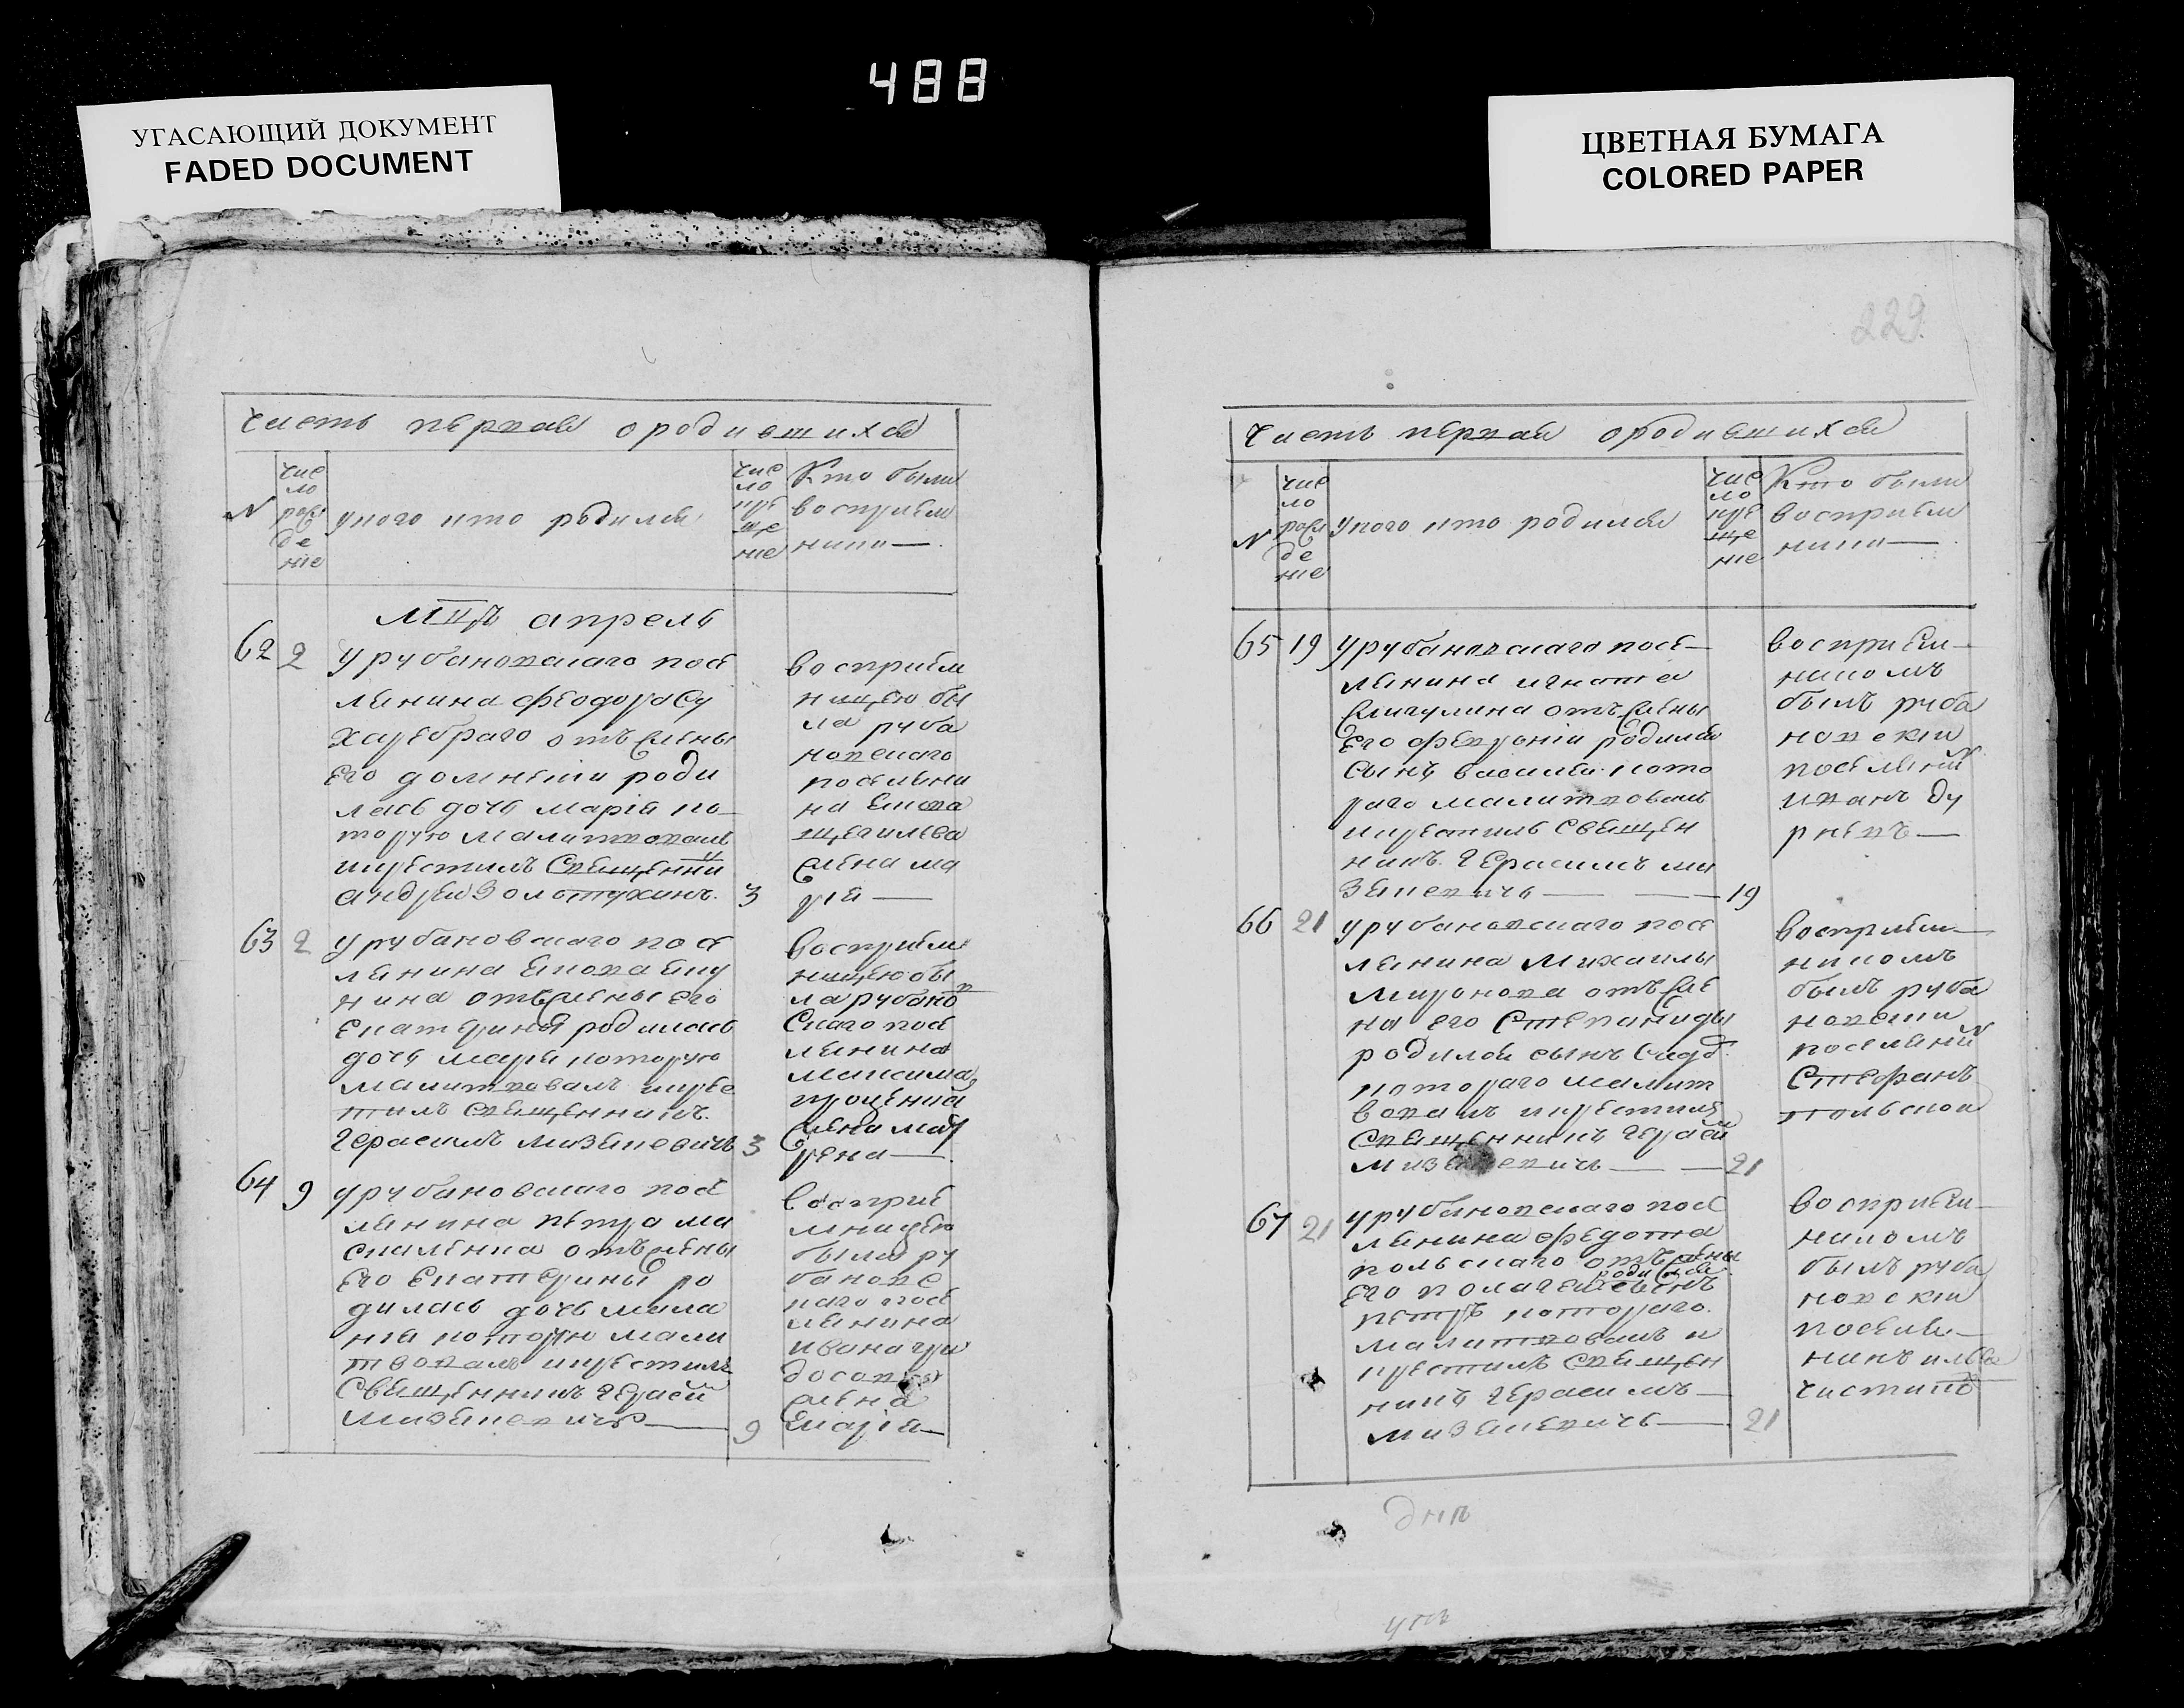 488
УГАСАЮЩИЙ ДОКУМЕНТ
FADED DOCUMENT
ЦВЕТНАЯ БУМАГА
COLORED PAPER
229
Часть первая о родившихся
№
чис
ло
рож
де
ние
у кого кто родился
чис
ло
кре
ще
ние
Кто были
восприем
ники —
Мць апрель
62 2
У рубановскаго посе
ленина Феодора Су
харебраго отъ жены
Его домникіи роди
лась дочь Марія ко
торую Малитвовалъ
икрестилъ Священни
андрей Золотухинъ. 3
восприем
ницею бы
ла руба
новскаго
поселени
на Якова
щегилева
жена ма
рія —
63 2
У рубановскаго посе
ленина Якова Яку
нина отъ жены его
Екатерины родилась
дочь марія которую
малитвовалъ икрес
тилъ Священникъ
Герасимъ мизякевичъ 3
восприем
ницею бы
ла рубанов
скаго посе
ленина
максима
проценка
жена мат
рена —
64 9
У рубановскаго посе
ленина петра ма
скаленка отъ жены
Его Екатерины ро
дилась дочь мила
нія которую мали
твовалъ икрестилъ
Священникъ Гераси
мизякевичъ — 9
восприе
мницею
была ру
бановс
каго посе
ленина
ивана
жена
марія —
Часть первая о родившихся
№
чис
ло
рож
де
ние
у кого кто родился
чис
ло
кре
ще
ние
Кто были
восприем
ники —
65 19
У рубановскаго посе—
ленина игната
отъ жены
Его февроніи родился
сынъ василій кото
раго малитвовалъ
икрестилъ священ
никъ Герасимъ ми
зякевичъ — — 19
восприем—
никомъ
былъ руба
новскій
поселений
иванъ ду
рневъ —
66 21
У рубановскаго посе
ленина Михаилы
Миронова отъ же
на его Степаниды
родился сынъ Сидо
котораго малит
вовалъ икрестилъ
Священникъ Гераси
мизякевичъ — — 21
восприем—
никомъ
былъ руба
новскій
поселений
Стефанъ
польской
67 21
У рубановскаго посе
ленина Федота
польскаго отъ жены
его пелагеи родился сынъ
петръ котораго
малитвовалъ и
крестилъ Священ
никъ Герасимъ —
мизякевичъ — 21
восприем—
никомъ
былъ руба
новскій
поселе—
нинъ илья